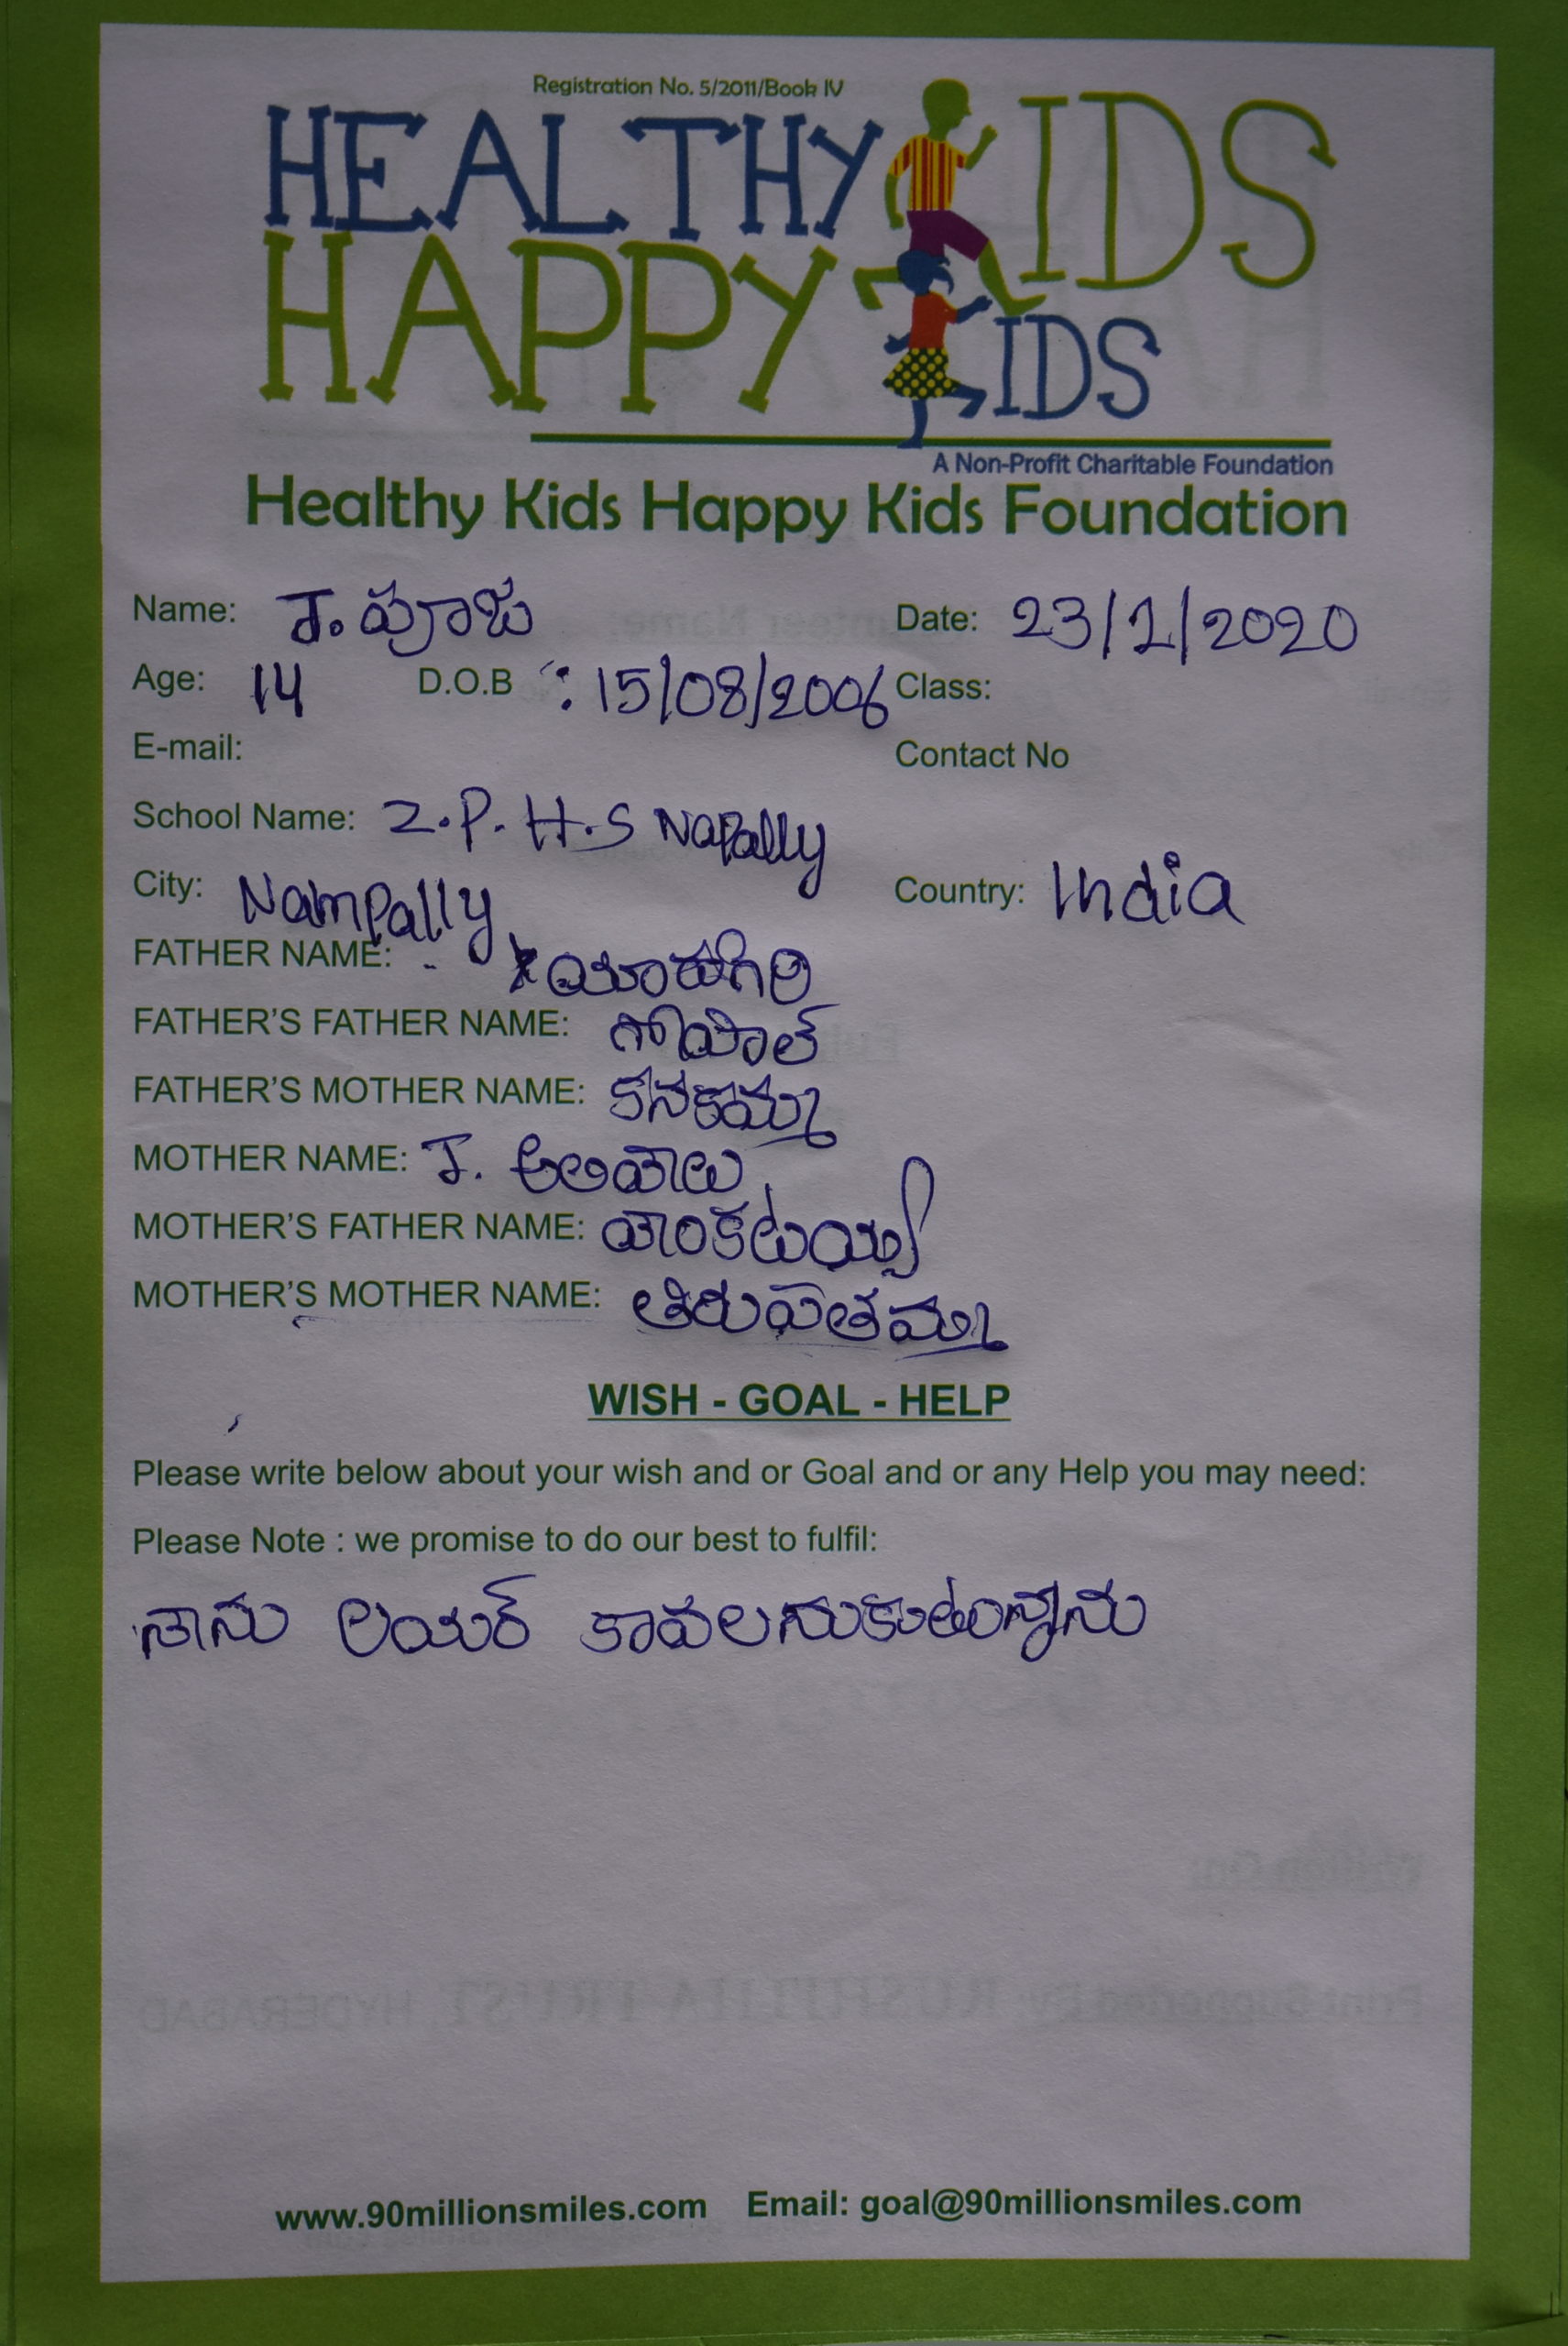 Registration No. 5/2011/Book IV
HEALTHY KIDS
HAPPY KIDS
A Non-Profit Charitable Foundation
Healthy Kids Happy Kids Foundation
Name: J. పూజ Date: 23/1/2020
Age: 14 D.O.B : 15/08/2006 Class:
E-mail: Contact No
School Name: Z.P.H.S Napally
City: Nampally Country: India
FATHER NAME: యాదగిరి
FATHER'S FATHER NAME: గోపాల్
FATHER'S MOTHER NAME: కనకమ్మ
MOTHER NAME: J. అలివేలు
MOTHER'S FATHER NAME: వెంకటయ్య
MOTHER'S MOTHER NAME: తిరుపతమ్మ
WISH - GOAL - HELP
Please write below about your wish and or Goal and or any Help you may need:
Please Note : we promise to do our best to fulfil:
నాను లయర్ కావలనుకుతున్నాను
www.90millionsmiles.com Email: goal@90millionsmiles.com